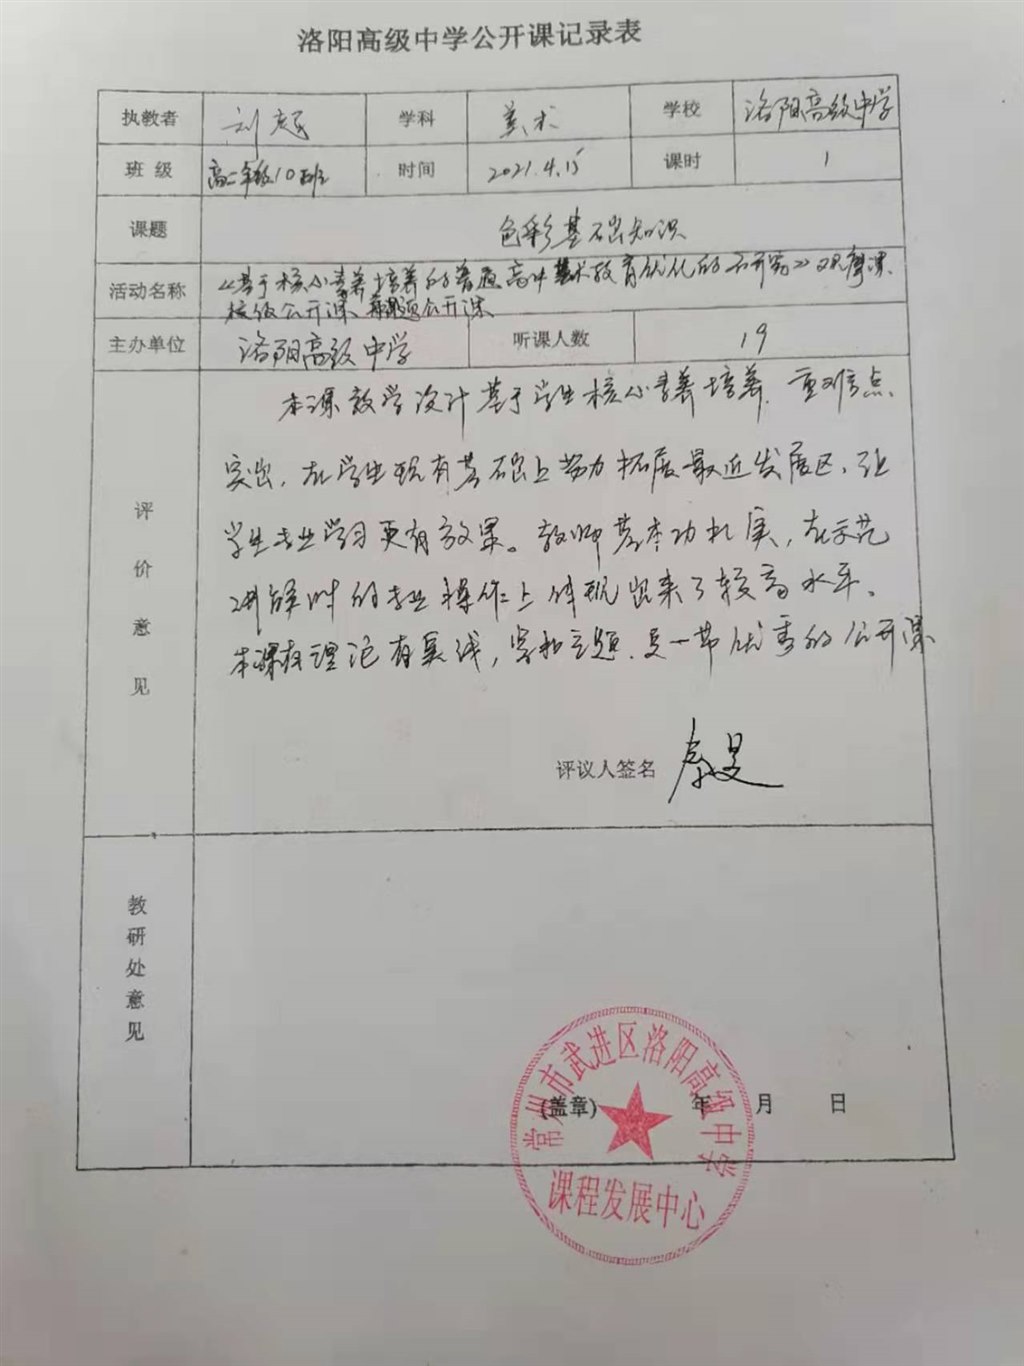 洛阳高级中学公开课记录表
执教者 刘 学科 美术 学校 洛阳高级中学
班 级 高二年级10班 时间 2021.4.15 课时 1
课题 色彩基础知识
活动名称 《基于核心素养培养的普通高中美术教育优化的研究》观摩课、
校级公开课、课题公开课
主办单位 洛阳高级中学 听课人数 19
评价意见
本课教学设计基于学生核心素养培养，重难点
突出，在学生现有基础上努力拓展最近发展区，让
学生专业学习更有效果。教师基本功扎实，在示范
讲解时的专业操作上体现出来了较高水平。
本课有理论有实践，紧扣主题，是一节优秀的公开课
评议人签名 秦旻
教研处意见
(盖章) 年 月 日
常州市武进区洛阳高级中学
课程发展中心